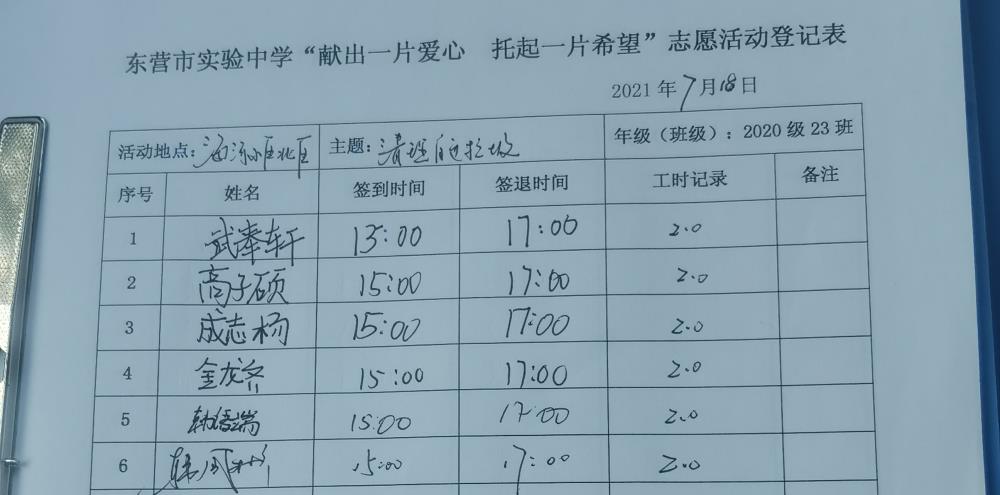 东营市实验中学“献出一片爱心 托起一片希望”志愿活动登记表
2021年7月18日
活动地点: 主题: 清理 垃圾 年级（班级）: 2020级23班
序号 姓名 签到时间 签退时间 工时记录 备注
1 武奉轩 15:00 17:00 2.0
2 高子硕 15:00 17:00 2.0
3 成志杨 15:00 17:00 2.0
4 金龙 15:00 17:00 2.0
5 韩语端 15:00 17:00 2.0
6 15:00 17:00 2.0